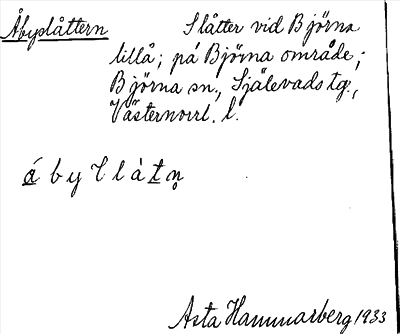 Åbyslåttern Slåtter vid Björna
lillå; på Björna område;
Björna sn., Själevads tg.,
Västernorrl. l.
Asta Hammarberg 1933